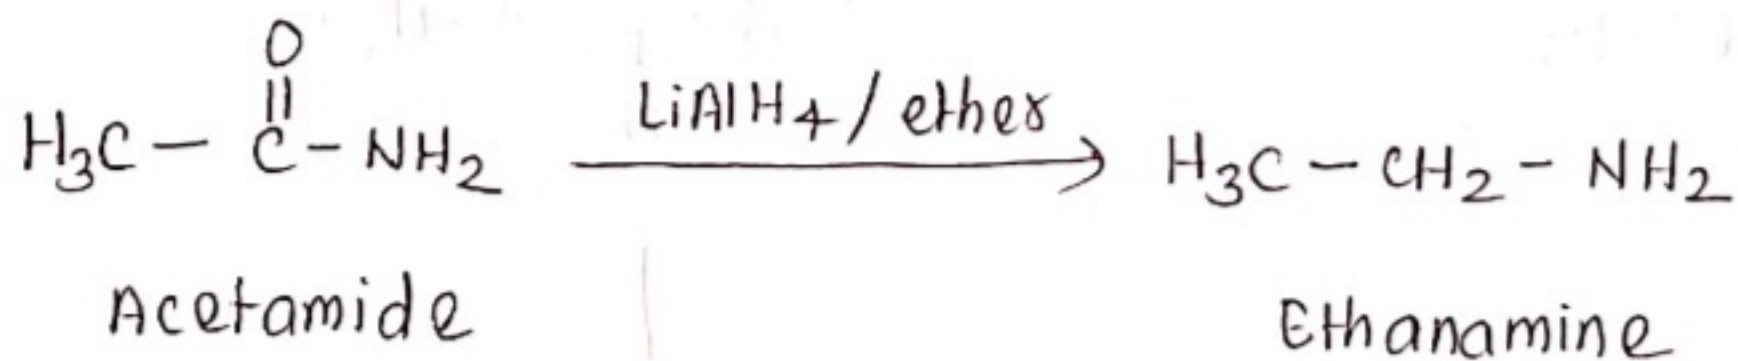 O
||
H₃C – C – NH₂ LiAlH₄ / ether → H₃C – CH₂ – NH₂
Acetamide Ethanamine